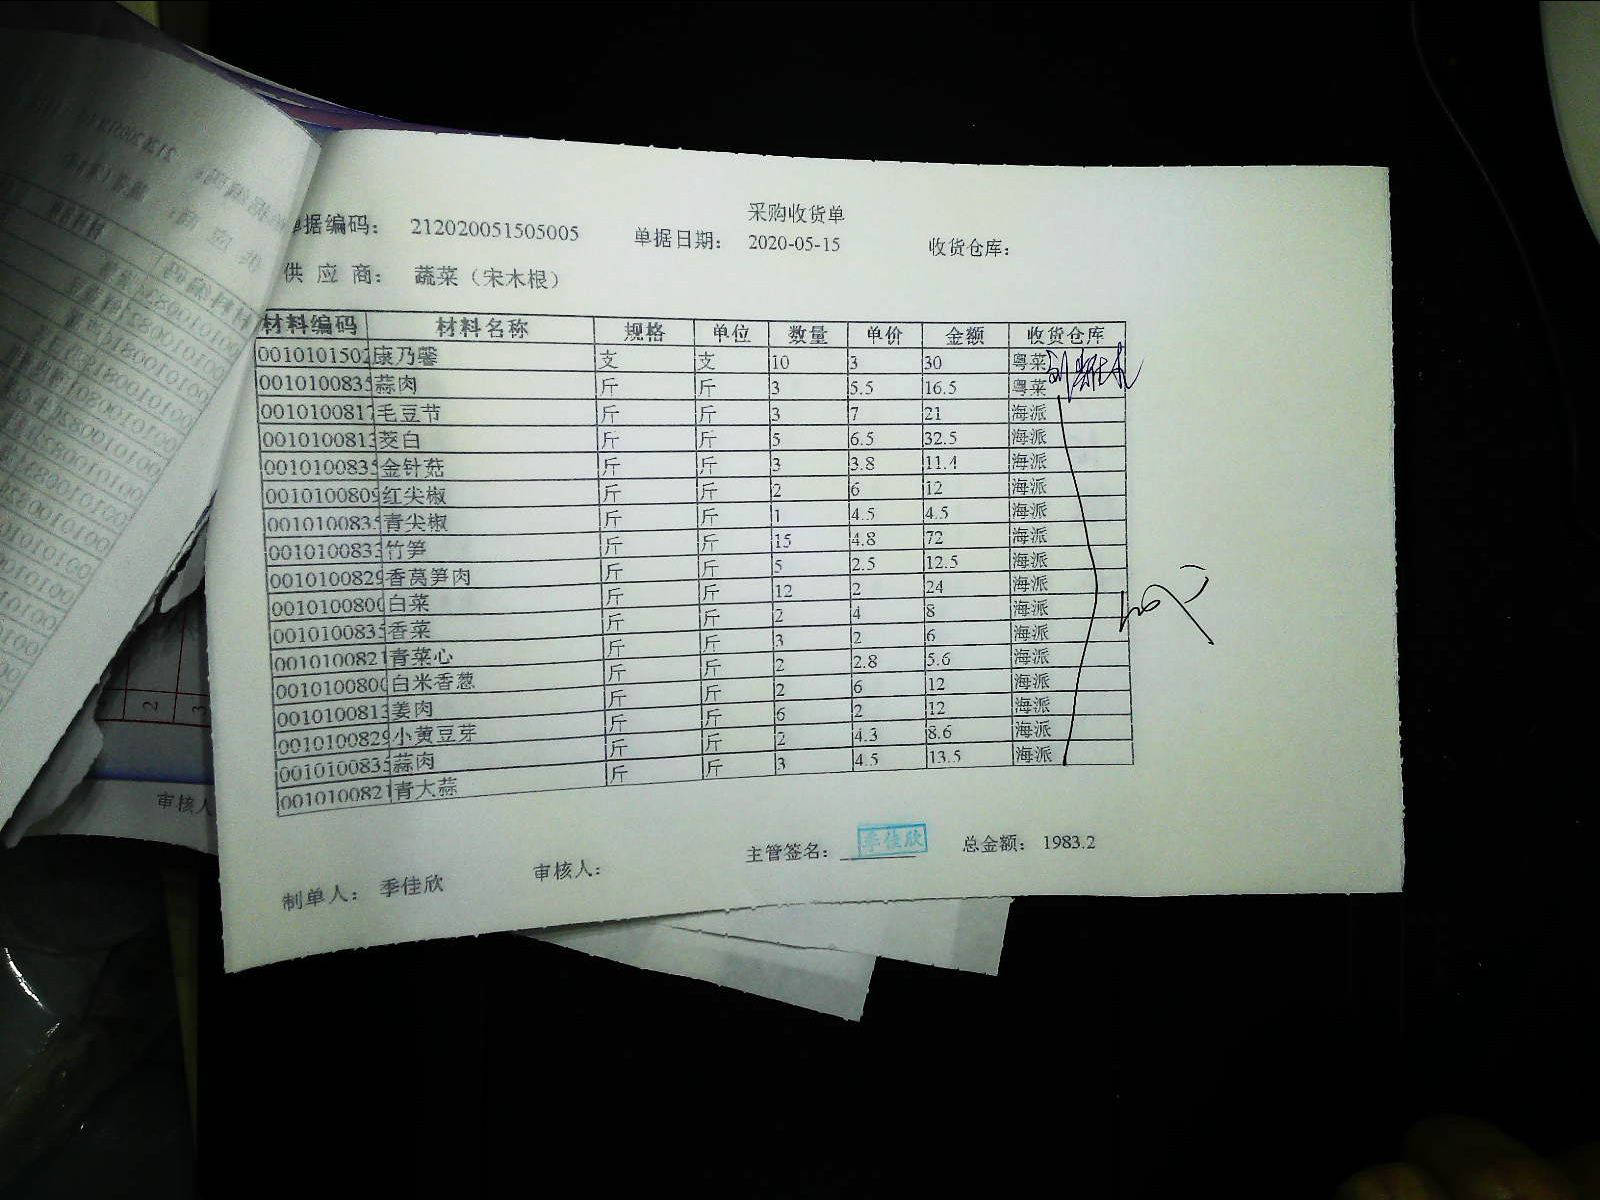 采购收货单
单据编码： 212020051505005 单据日期： 2020-05-15 收货仓库：
供 应 商： 蔬菜（宋木根）
材料编码 材料名称 规格 单位 数量 单价 金额 收货仓库
0010101502 康乃馨 支 支 10 3 30 粤菜
001010083 蒜肉 斤 斤 3 5.5 16.5 粤菜
0010100817 毛豆节 斤 斤 3 7 21 海派
001010081 茭白 斤 斤 5 6.5 32.5 海派
001010083 金针菇 斤 斤 3 3.8 11.4 海派
0010100809 红尖椒 斤 斤 2 6 12 海派
001010083 青尖椒 斤 斤 1 4.5 4.5 海派
001010083 竹笋 斤 斤 15 4.8 72 海派
0010100829 香莴笋肉 斤 斤 5 2.5 12.5 海派
001010080 白菜 斤 斤 12 2 24 海派
001010083 香菜 斤 斤 2 4 8 海派
0010100821 青菜心 斤 斤 3 2 6 海派
001010080 白米香葱 斤 斤 2 2.8 5.6 海派
001010081 姜肉 斤 斤 2 6 12 海派
0010100829 小黄豆芽 斤 斤 6 2 12 海派
001010083 蒜肉 斤 斤 2 4.3 8.6 海派
0010100821 青大蒜 斤 斤 3 4.5 13.5 海派
制单人： 季佳欣 审核人： 主管签名： 季佳欣 总金额： 1983.2
审核人
2
3